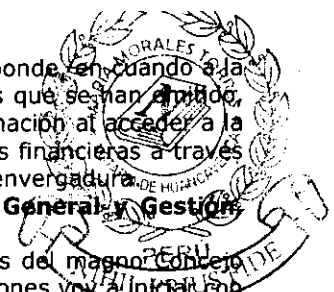 ponde, en cuando a la
s que se han emitido,
mación al acceder a la
s financieras a través
envergadura.
General y Gestión,
s del magno Concejo
ones voy a iniciar con
MORALES
DE HUANCA
PERU